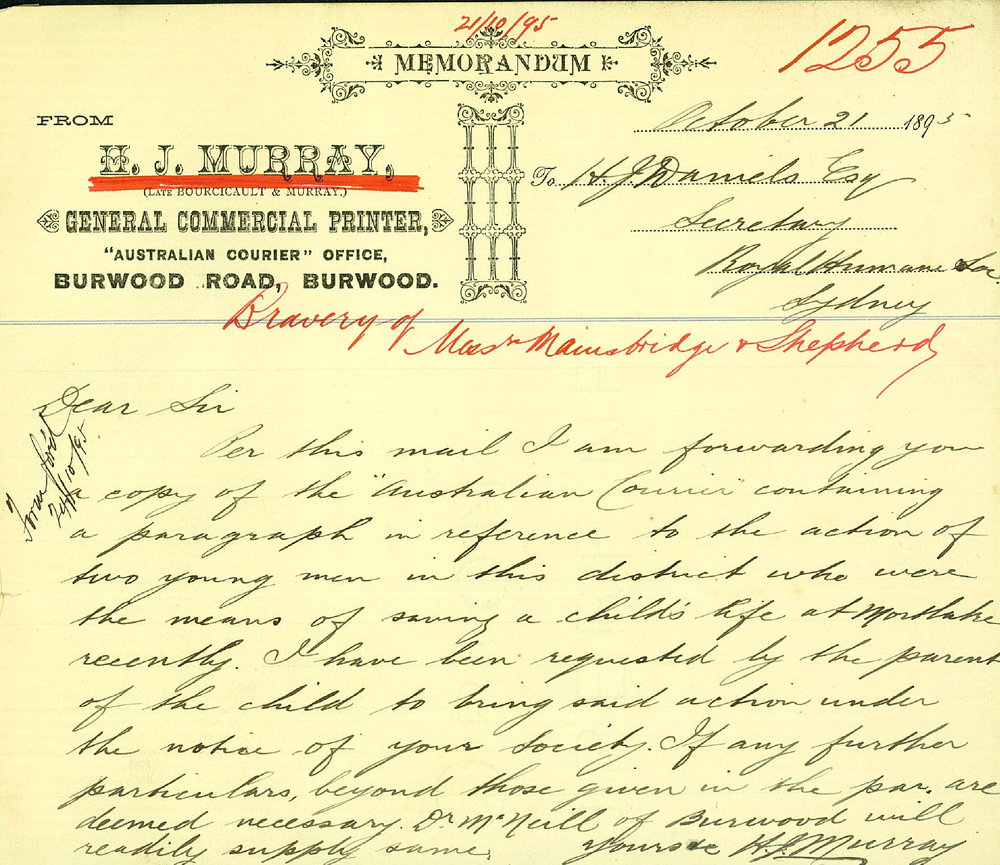 21/10/95
MEMORANDUM
1255
FROM
October 21 1895
H. J. MURRAY,
(LATE BOURCICAULT & MURRAY.)
To H J Daniels Esq
GENERAL COMMERCIAL PRINTER,
Secretary
"AUSTRALIAN COURIER" OFFICE,
Royal Humane Soc.
BURWOOD ROAD, BURWOOD.
Sydney
Bravery of Messrs Mainsbridge & Shepherd
Dear Sir
Per this mail I am forwarding you
a copy of the "Australian Courier" containing
a paragraph in reference to the action of
two young men in this district who were
the means of saving a child's life at Mortlake
recently. I have been requested by the parent
of the child to bring said action under
the notice of your Society. If any further
particulars, beyond those given in the par. are
deemed necessary. Dr McNeill of Burwood will
readily supply same. Yours &c H. J. Murray